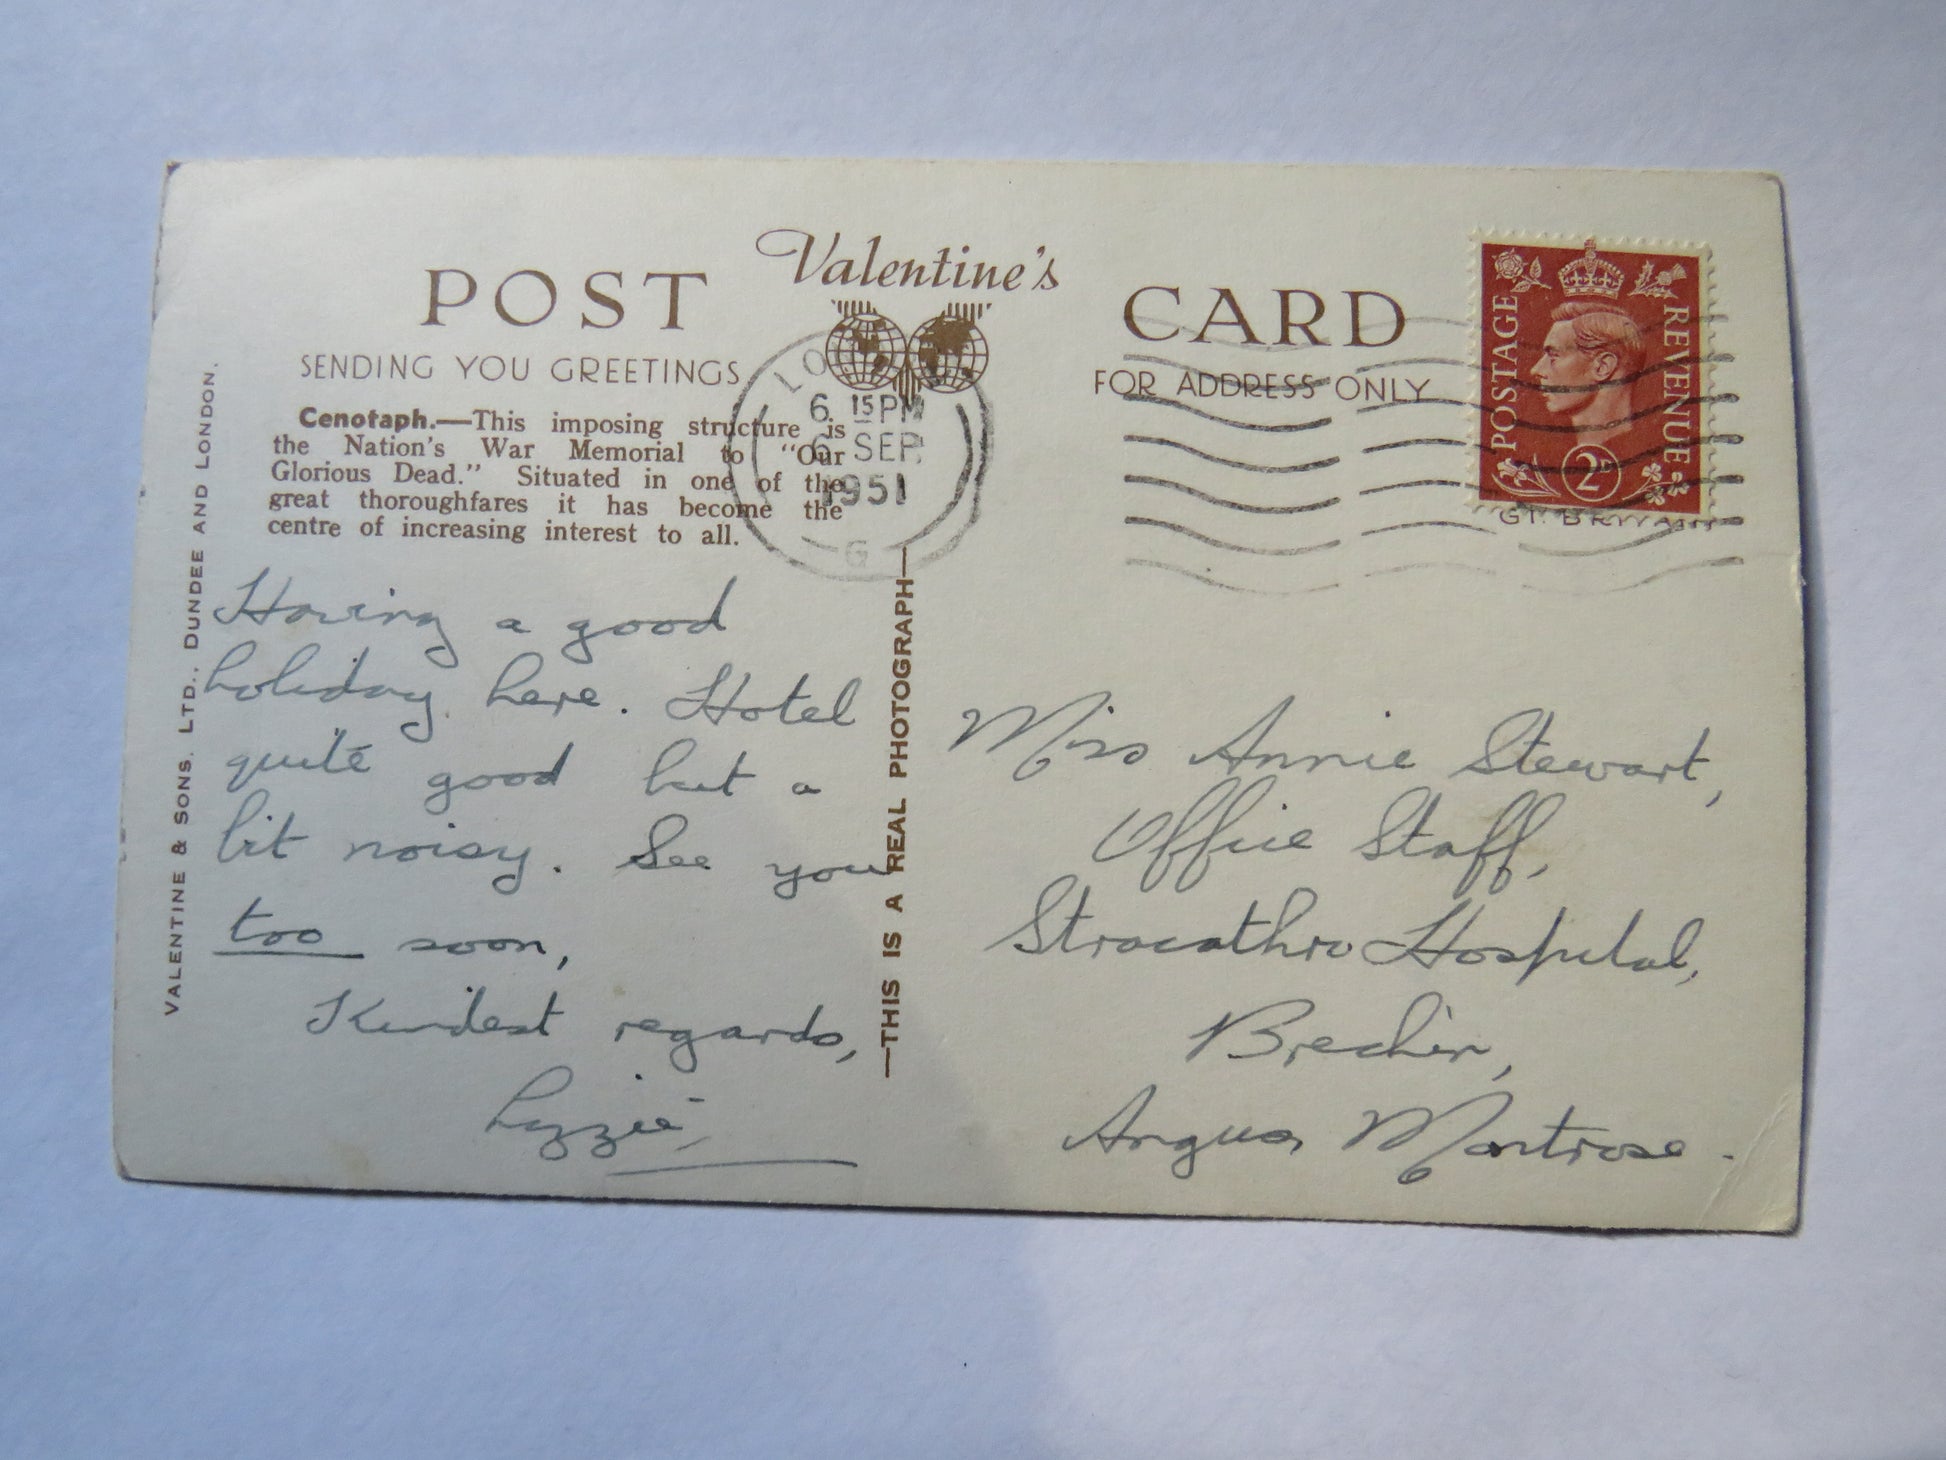 POST Valentine's CARD
SENDING YOU GREETINGS
FOR ADDRESS ONLY
Cenotaph.—This imposing structure is
the Nation's War Memorial to "Our
Glorious Dead." Situated in one of the
great thoroughfares it has become the
centre of increasing interest to all.
6. 15 PM
6 SEP
1951
G
POSTAGE
REVENUE
2D
GT. BRITAIN
VALENTINE & SONS. LTD., DUNDEE AND LONDON.
—THIS IS A REAL PHOTOGRAPH—
Having a good
holiday here. Hotel
quite good but a
bit noisy. See you
too soon,
Kindest regards,
Lizzie,
Miss Annie Stewart,
Office Staff,
Stracathro Hospital,
Brechin,
Angus, Montrose.